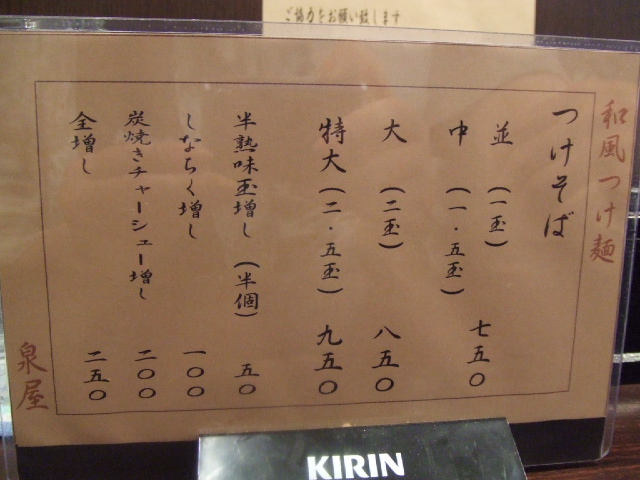 ご協力をお願い致します
和風つけ麺
つけそば
並（一玉）
中（一・五玉）
七五〇
大（二玉）八五〇
特大（二・五玉）九五〇
半熟味玉増し（半個）五〇
しなちく増し一〇〇
炭焼きチャーシュー増し二〇〇
全増し二五〇
泉屋
KIRIN